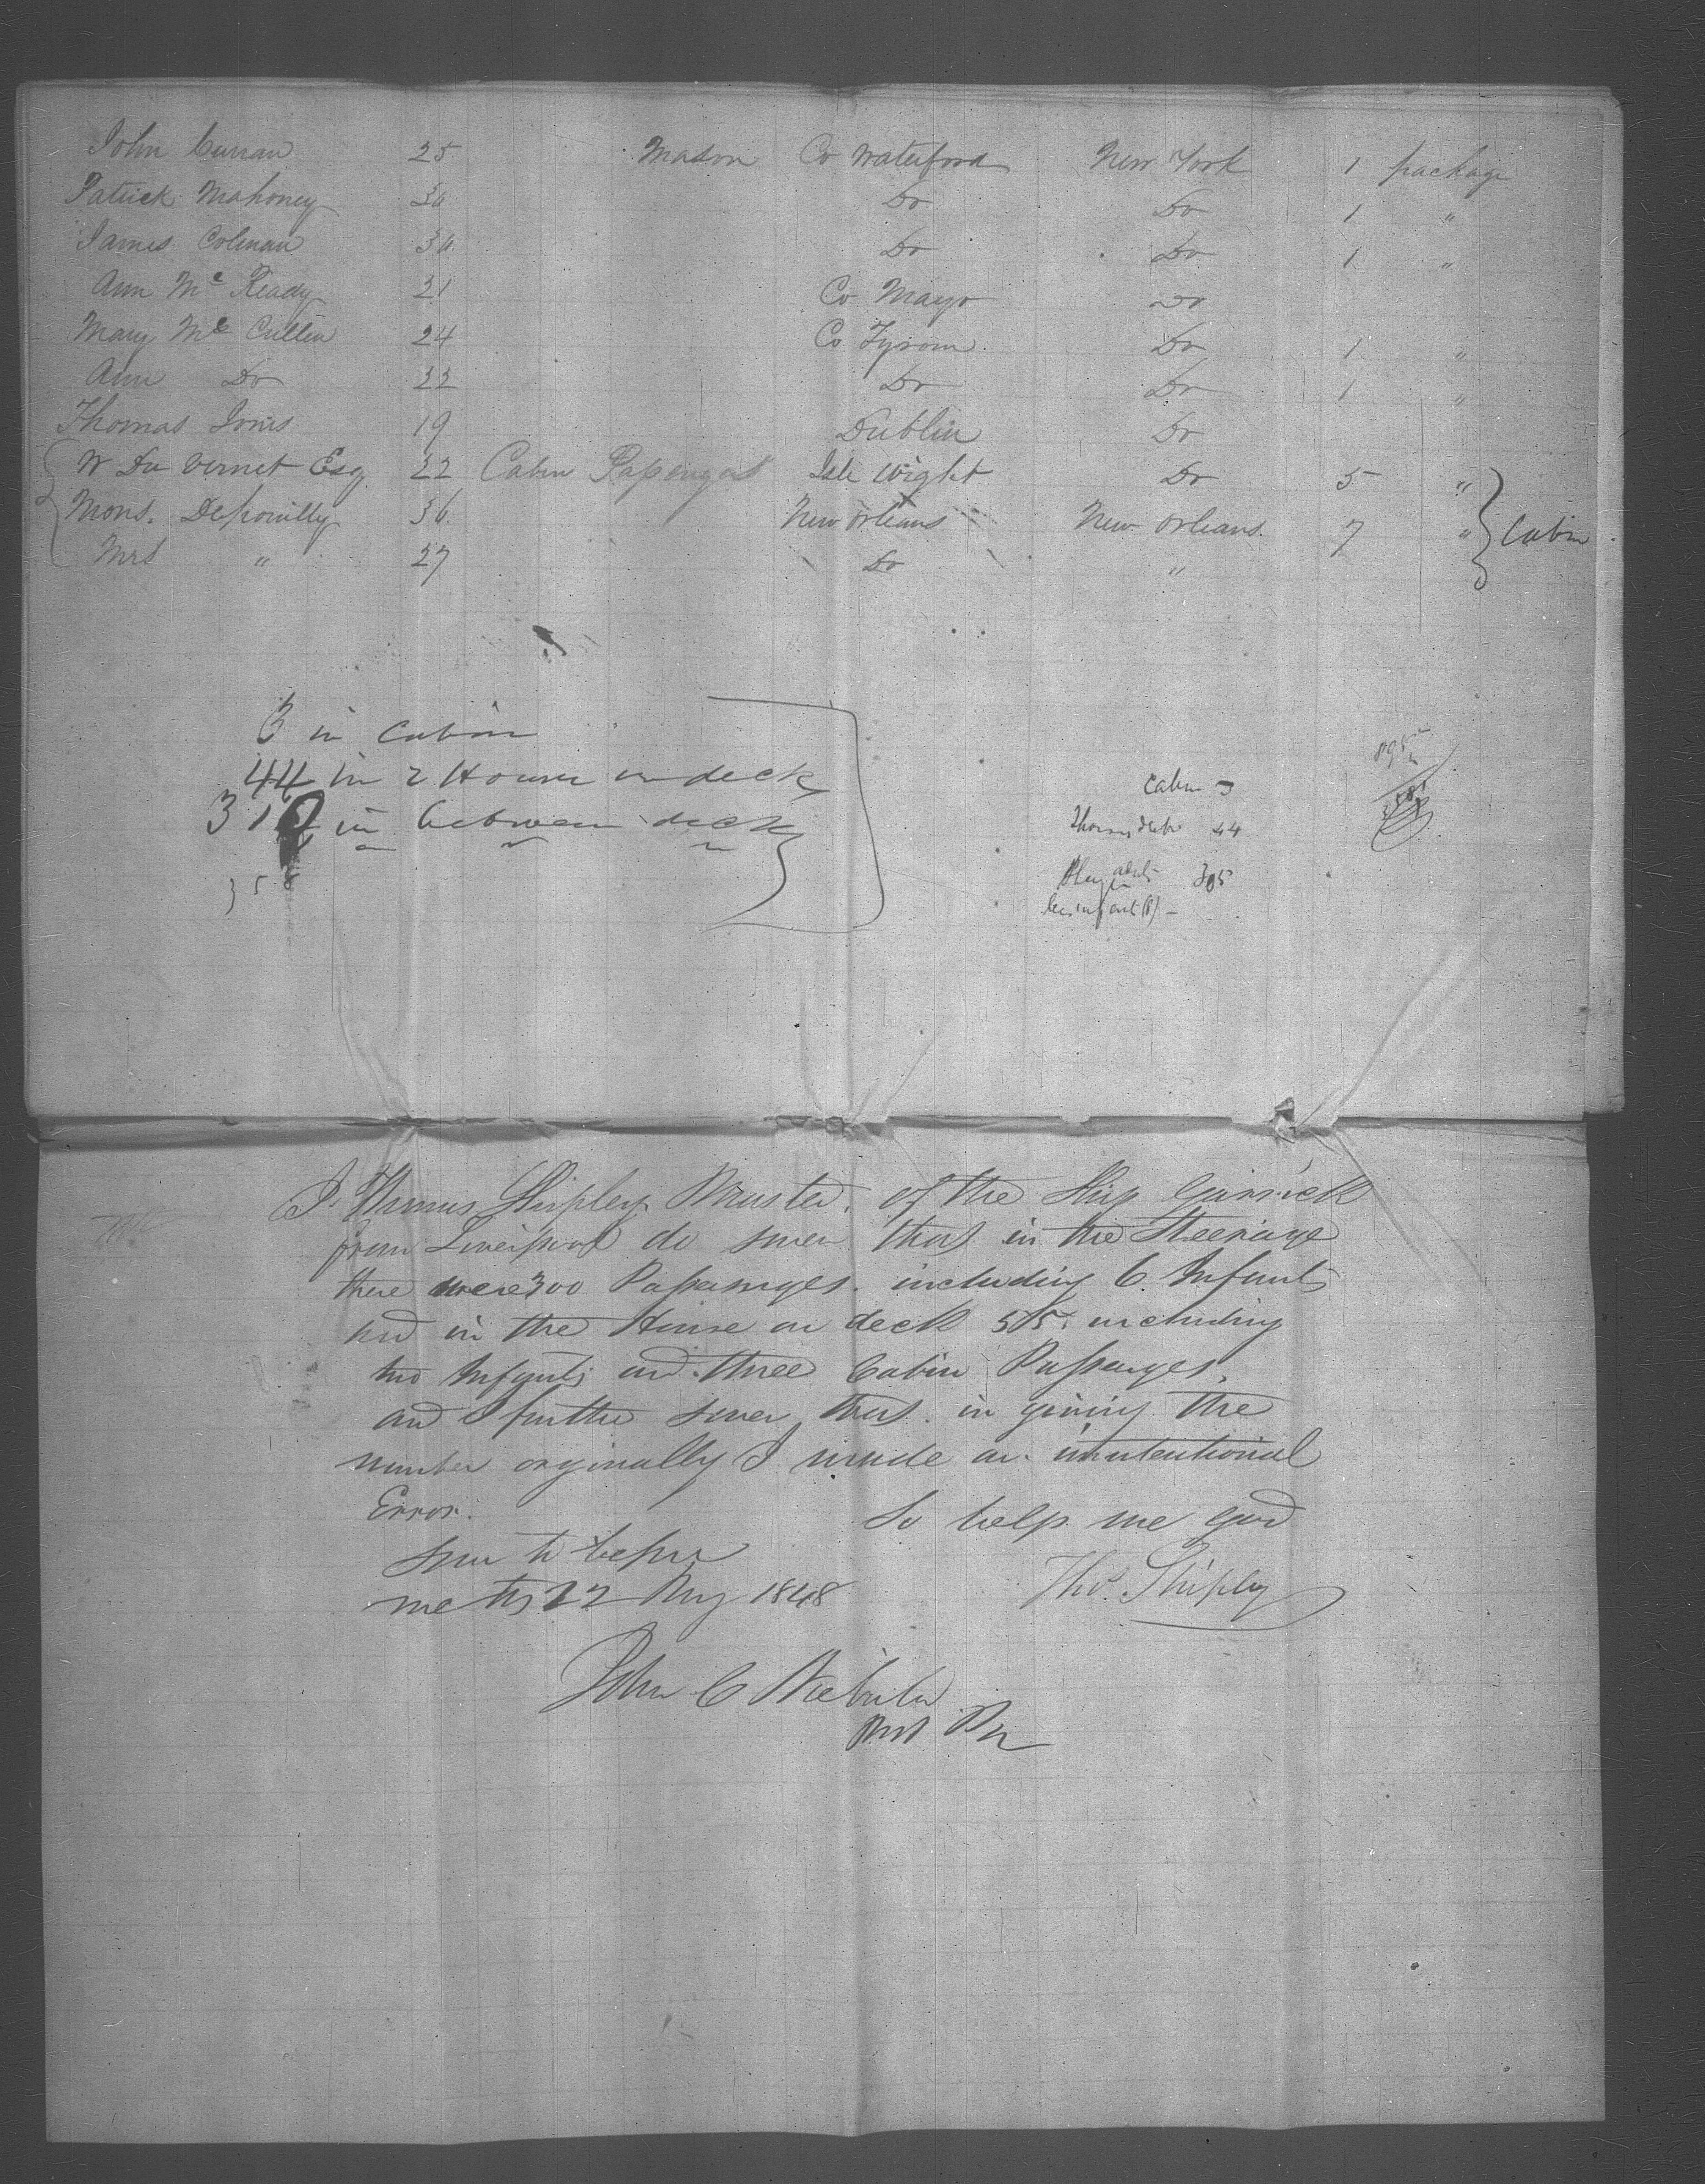 John Curran 25 Mason Co Waterford New York 1 package
Patrick Mahoney 30 Do Do 1 "
James Colman 30 Do Do 1 "
Ann Mc Ready 21 Co Mayo Do
Mary Mc Cullen 24 Co Tyrom Do 1 "
Ann Do 22 Do Do 1 "
Thomas Jones 19 Dublin Do
W Du Vernet Esq 22 Cabin Passengers Isle Wight Do 5 "
Mons. Depouilly 36 New Orleans New Orleans 7 " Cabin
Mrs " 27 Do "
3 in Cabin
44 in 2 House on deck
31 in between decks
358
Cabin 3
44
305
I Thomas Shipley Master of the Ship Garrick
from Liverpool do swear that in the Steerage
there were 300 Passenges including 6 Infants
and in the House on deck 55 including
two Infants and three Cabin Passenges,
and I further swear that in giving the
number orginally I made an unintentional
Error. So help me God
Sworn to before
me this 22 Aug 1848 Thos. Shipley
John C